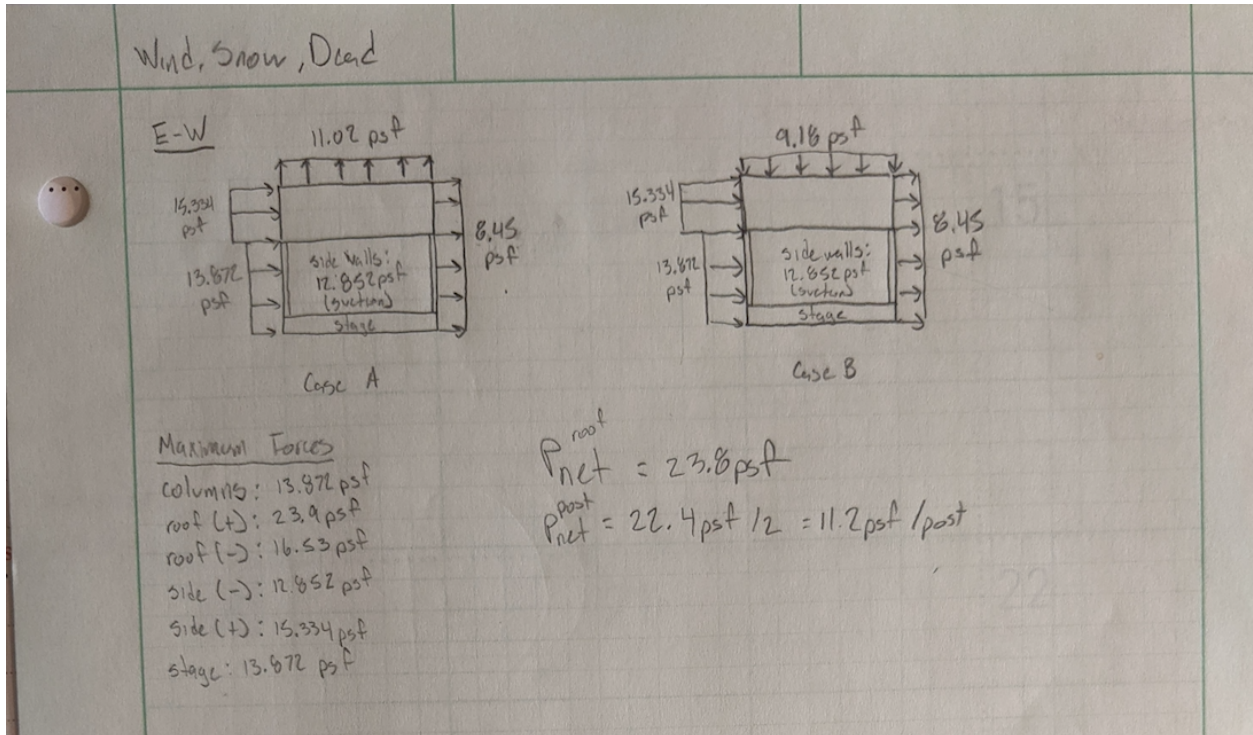 Wind, Snow, Dead
E-W
11.02 psf
15.334
psf
13.872
psf
side walls:
12.852psf
(suction)
stage
8.45
psf
Case A
9.18 psf
15.334
psf
13.872
psf
side walls:
12.852 psf
(suction)
stage
8.45
psf
Case B
Maximum Forces
columns: 13.872 psf
roof (+): 23.9psf
roof (-): 16.53psf
side (-): 12.852 psf
side (+): 15.334psf
stage: 13.872 psf
P net roof = 23.8psf
P net post = 22.4psf /2 = 11.2psf /post
15
22